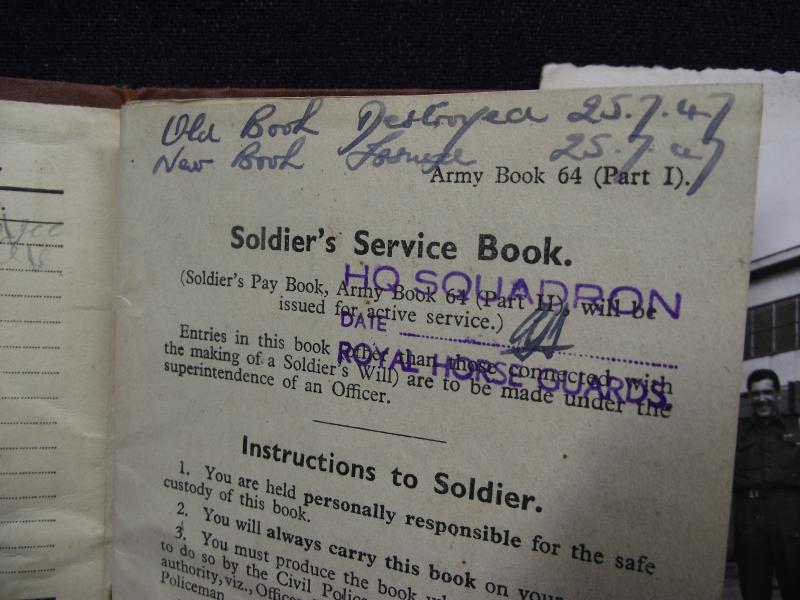 Old Book Destroyed 25.7.47
New Book Issued 25.7.47
Army Book 64 (Part I).
Soldier's Service Book.
(Soldier's Pay Book, Army Book 64 (Part II), will be
issued for active service.)
HQ SQUADRON
DATE
ROYAL HORSE GUARDS.
Entries in this book (other than those connected with
the making of a Soldier's Will) are to be made under the
superintendence of an Officer.
Instructions to Soldier.
1. You are held personally responsible for the safe
custody of this book.
2. You will always carry this book on your
3. You must produce the book
to do so by the Civil
authority, viz., Officer
Policeman